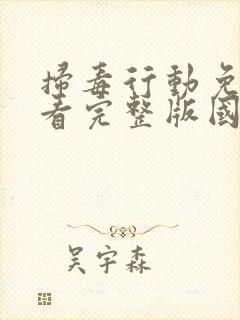 掃毒行動免
看完整版國
吴宇森